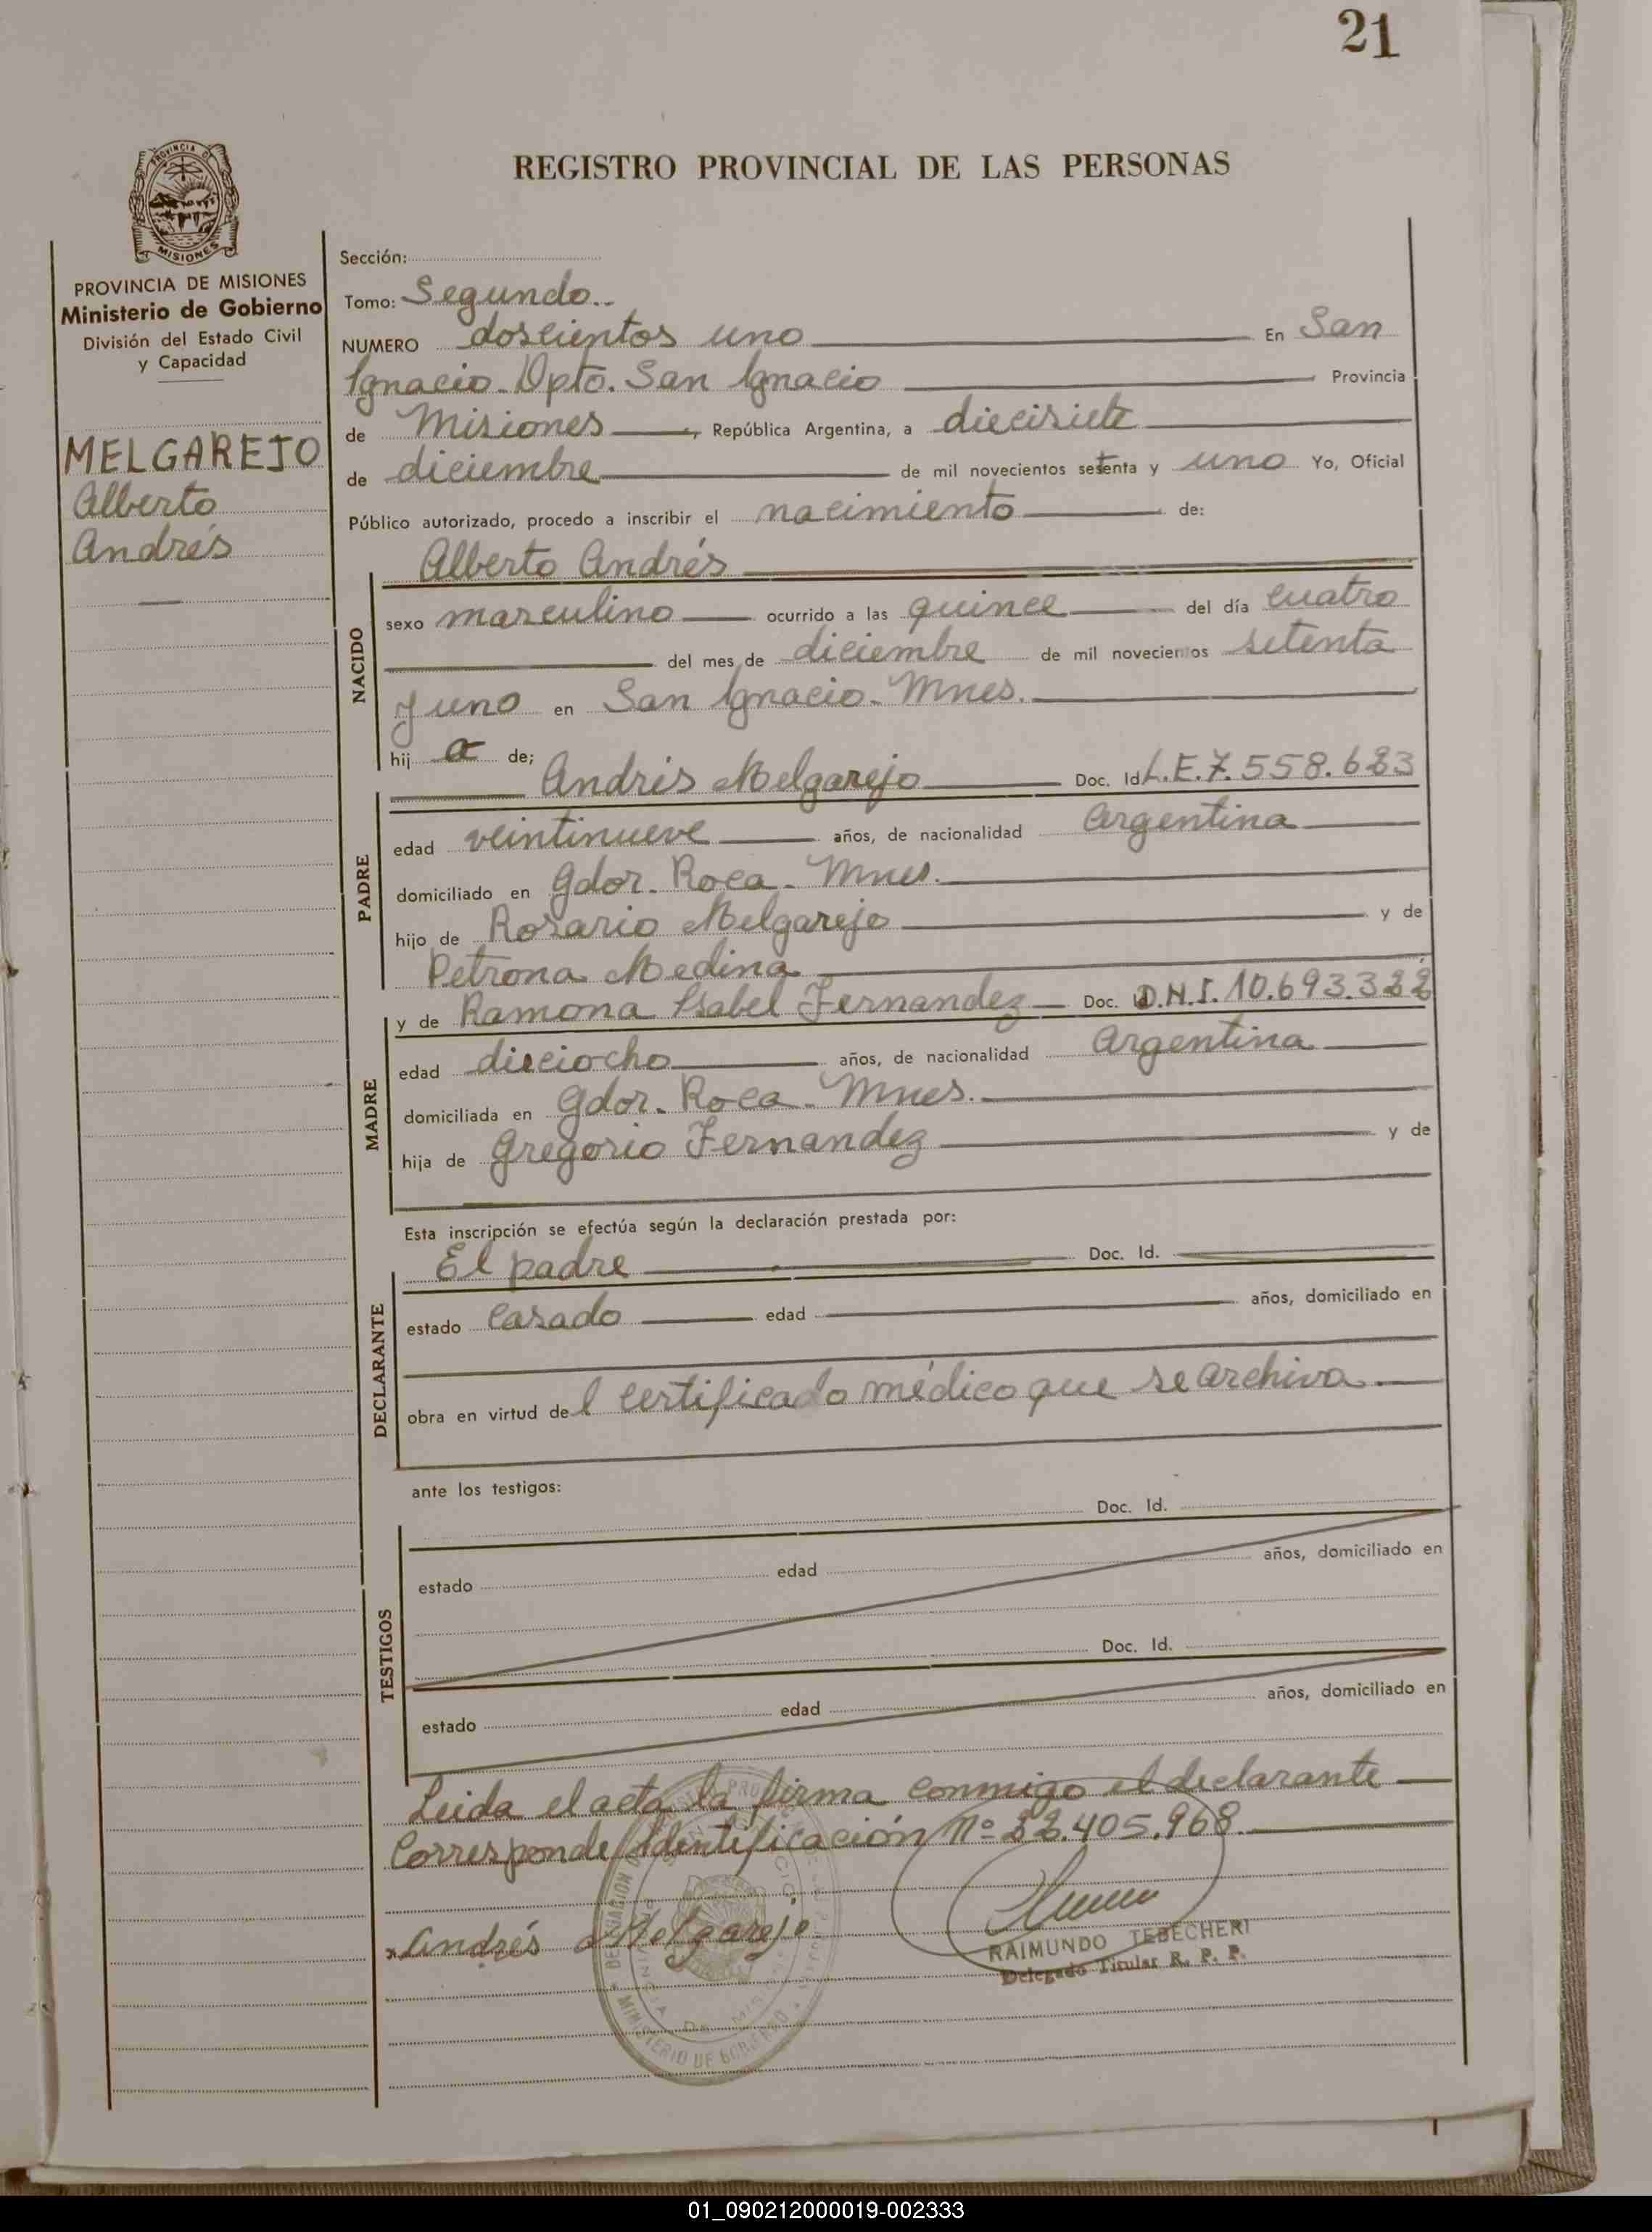 21
REGISTRO PROVINCIAL DE LAS PERSONAS
PROVINCIA DE MISIONES
Ministerio de Gobierno
División del Estado Civil
y Capacidad
MELGAREJO
Alberto
Andrés
Sección:
Tomo: Segundo
NUMERO doscientos uno En San
Ignacio. Dpto. San Ignacio Provincia
de Misiones, República Argentina, a diecisiete
de diciembre de mil novecientos setenta y uno Yo, Oficial
Público autorizado, procedo a inscribir el nacimiento de:
Alberto Andrés
NACIDO
sexo masculino ocurrido a las quince del día cuatro
del mes de diciembre de mil novecientos setenta
y uno en San Ignacio. Mnes.
hij o de;
PADRE
Andrés Melgarejo Doc. Id L.E.7.558.683
edad veintinueve años, de nacionalidad Argentina
domiciliado en Gdor. Roca. Mnes.
hijo de Rosario Melgarejo y de
Petrona Medina
MADRE
y de Ramona Isabel Fernandez Doc. D.N.I. 10.693.322
edad dieciocho años, de nacionalidad Argentina
domiciliada en Gdor. Roca. Mnes.
hija de Gregorio Fernandez y de
Esta inscripción se efectúa según la declaración prestada por:
DECLARANTE
El padre Doc. Id.
estado casado edad años, domiciliado en
obra en virtud del certificado médico que se archiva
ante los testigos:
TESTIGOS
Doc. Id.
estado edad años, domiciliado en
Doc. Id.
estado edad años, domiciliado en
Leida el acta la firma conmigo el declarante
Corresponde Identificación nº 22.405.968
Andrés Melgarejo
RAIMUNDO TEBECHERI
Delegado Titular R. P. P.
MINISTERIO DE GOBIERNO
01_090212000019-002333